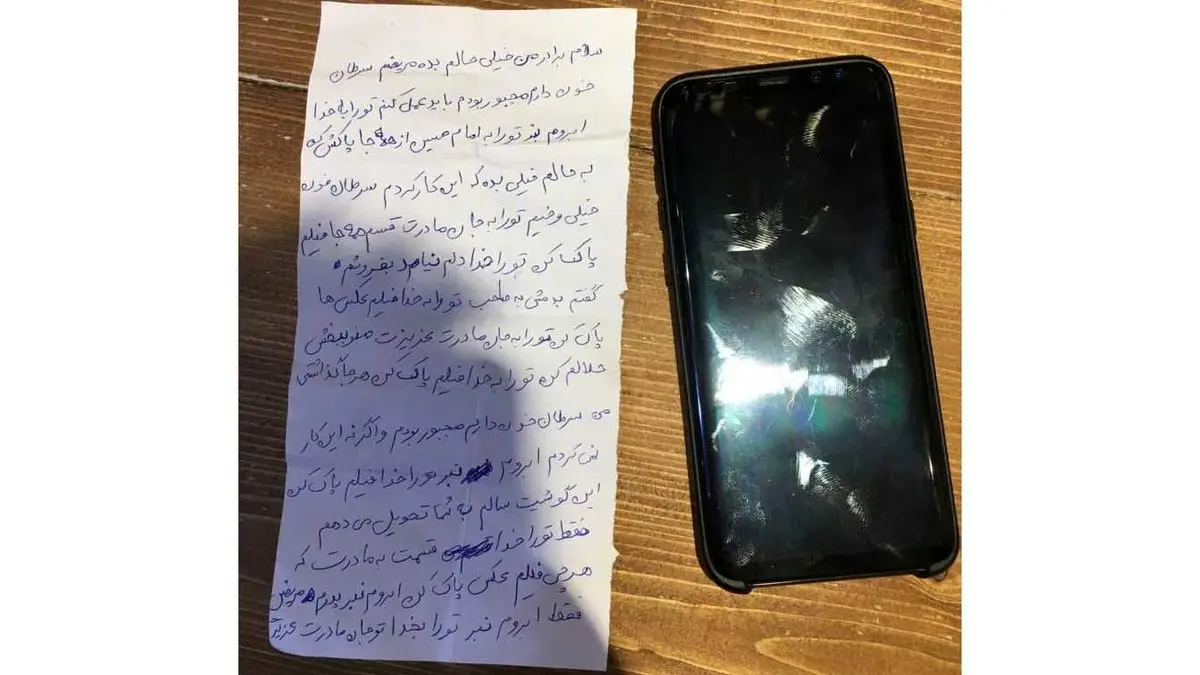 سلام برادر من خیلی حالم بده مریضم سرطان
خون دارم مجبور بودم باید عمل کنم تو را به خدا
ابروم نبر تو را به امام حسین از همه جا پاکش کن
به حالم خیلی بده که این کار کردم سرطان خون
خیلی وخیم تو را به جان مادرت قسم همه جا فیلم
پاک کن تو را خدا دلم نیامد بفروشم
گفتم بدمش به صاحب تو را به خدا فیلم عکس ها
پاک کن تو را به جان مادرت عزیزت منو ببخش
حلالم کن تو را به خدا فیلم پاک کن هر جا گذاشتی
من سرطان خون دارم مجبور بودم واگرنه این کار
نمی کردم ابروم نبر تو را خدا فیلم پاک کن
این گوشیت سالم به شما تحویل می دهم
فقط تو را خدا قسمت به مادرت که
هر چی فیلم عکس پاک کن ابروم نبر مریض
فقط ابروم نبر تو را بخدا تو جان مادرت عزیزت